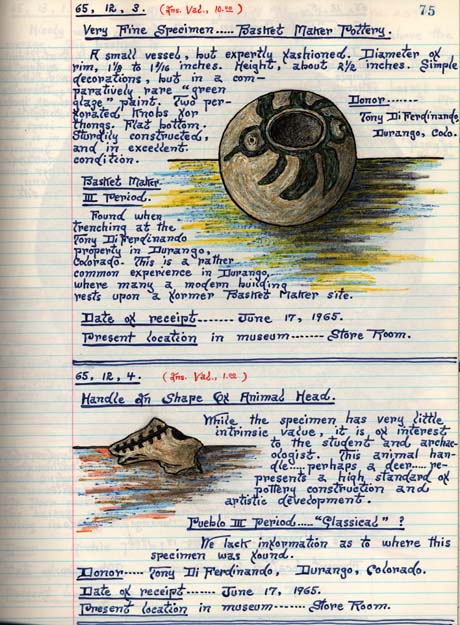 65, 12, 3. (Ins. Val., 10.00)
75
Very Fine Specimen..... Basket Maker Pottery.
A small vessel, but expertly fashioned. Diameter of
rim, 1 1/8 to 1 9/16 inches. Height, about 2 1/2 inches. Simple
decorations, but in a com-
paratively rare "green
glaze" paint. Two per-
forated knobs for
thongs. Flat bottom.
Sturdily constructed,
and in excellent
condition.
Donor.......
Tony Di Ferdinando,
Durango, Colo.
Basket Maker
III Period.
Found when
trenching at the
Tony Di Ferdinando
property in Durango,
Colorado. This is a rather
common experience in Durango,
where many a modern building
rests upon a former Basket Maker site.
Date of receipt....... June 17, 1965.
Present location in museum....... Store Room.
65, 12, 4. (Ins. Val., 1.00)
Handle In Shape Of Animal Head.
While the specimen has very little
intrinsic value, it is of interest
to the student and archae-
ologist. This animal han-
dle..... perhaps a deer..... re-
presents a high standard of
pottery construction and
artistic development.
Pueblo III Period..... "Classical" ?
We lack information as to where this
specimen was found.
Donor..... Tony Di Ferdinando, Durango, Colorado.
Date of receipt....... June 17, 1965.
Present location in museum....... Store Room.